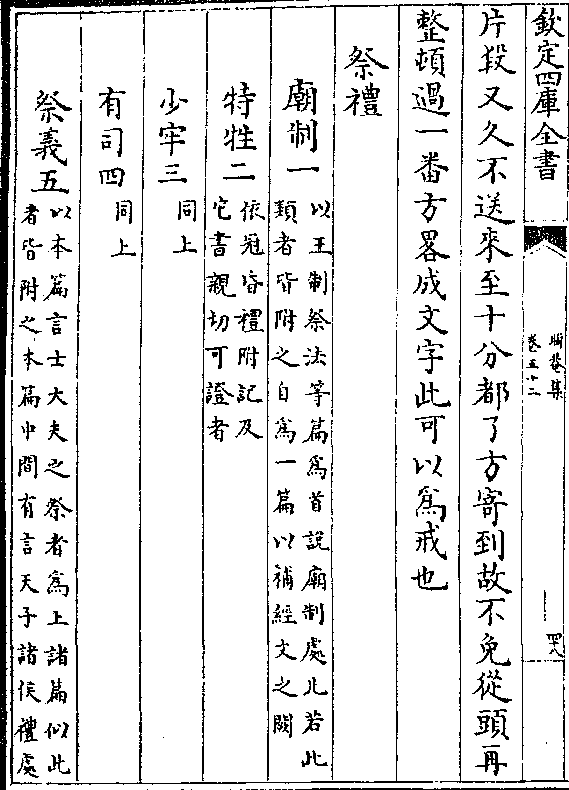 欽定四庫全書
晦菴集
卷五十二
罕
片段又久不送來至十分都了方寄到故不免從頭再
整頓過一番方畧成文字此可以為戒也
祭禮
廟制一
以王制祭法等篇為首說廟制處凡若此
類者皆附之自為一篇以補經文之闕
特牲二
依冠昏禮附記及
它書親切可證者
少牢三
同上
有司四
同上
祭義五
以本篇言士大夫之祭者為上諸篇似此
者皆附之本篇中間有言天子諸侯禮處